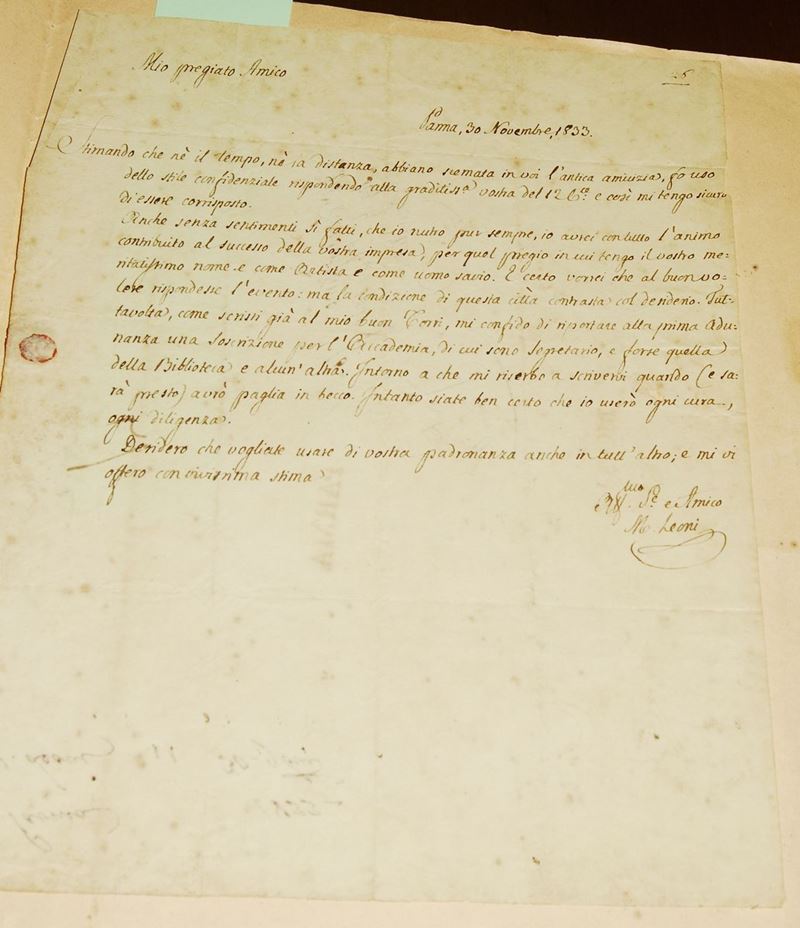 Mio pregiato Amico
26
Parma, 30 Novembre, 1833.
Stimando che nè il tempo, nè la distanza, abbiano scemata in voi l'antica amicizia, fo uso
dello stile confidenziale rispondendo alla graditiss.ª vostra del 12 e così mi tengo sicuro
di essere corrisposto.
Anche senza sentimenti sì fatti, che io nutro pur sempre, io avrei con tutto l'animo
contribuito al successo della vostra impresa, per quel pregio in cui tengo il vostro me-
ritatissimo nome e come Artista e come uomo savio. E certo vorrei che al buon vo=
lere rispondesse l'evento: ma la condizione di questa città contrasta col desiderio. Tut-
tavolta, come scrissi già al mio buon Torri, mi confido di riportare alla prima Adu-
nanza una Soscrizione per l'Accademia, di cui sono Segretario, e forse quella
della Biblioteca e alcun'altra. Intorno a che mi riserbo a scrivervi quando (e sa-
rà presto) avrò paglia in becco. Intanto siate ben certo che io userò ogni cura,
ogni diligenza.
Desidero che vogliate usare di vostra padronanza anche in tutt'altro; e mi vi
offero con vivissima stima
e Amico
M. Leoni